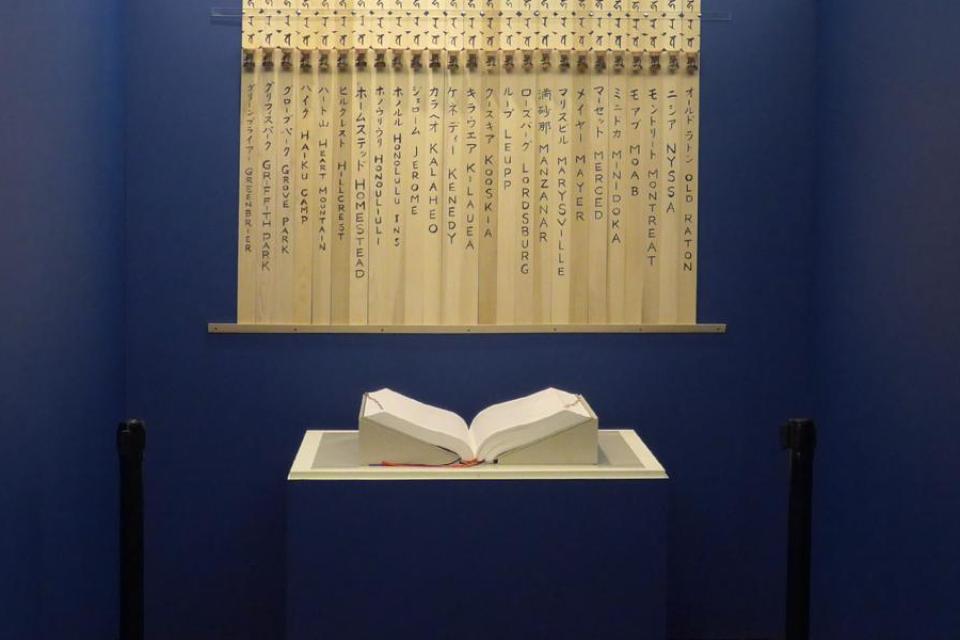 グリーンブライアー GREENBRIER
グリフスパーク GRIFFITH PARK
グローブパーク GROVE PARK
ハイク HAIKU CAMP
ハート山 HEART MOUNTAIN
ヒルクレスト HILLCREST
ホームステッド HOMESTEAD
ホノウリウリ HONOULIULI
ホノルル HONOLULU INS
ジェローム JEROME
カラヘオ KALAHEO
ケネディー KENEDY
キラウエア KILAUEA
クースキア KOOSKIA
ループ LEUPP
ローズバーグ LORDSBURG
満砂那 MANZANAR
マリスビル MARYSVILLE
メイヤー MAYER
マーセット MERCED
ミニドカ MINIDOKA
モアブ MOAB
モントリート MONTREAT
ニシア NYSSA
オールドラトン OLD RATON